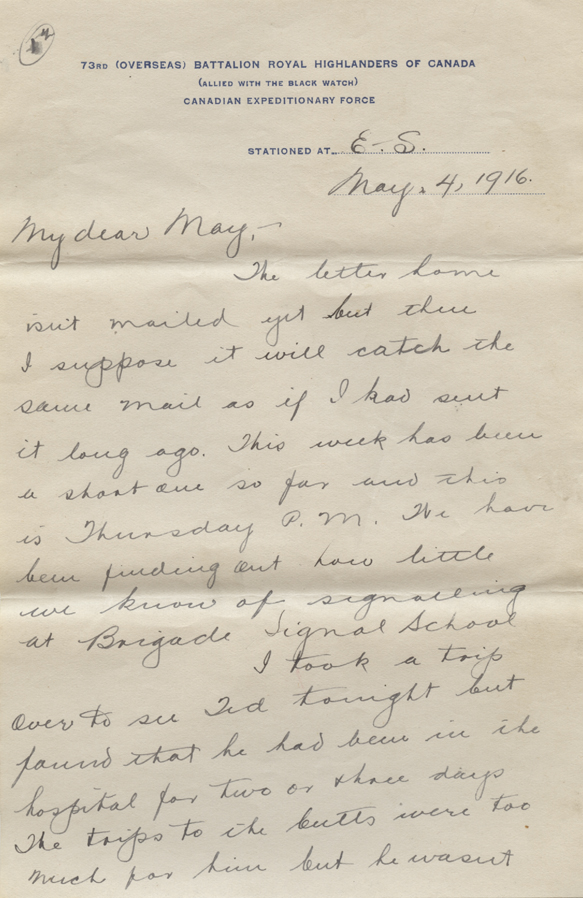 73RD (OVERSEAS) BATTALION ROYAL HIGHLANDERS OF CANADA
(ALLIED WITH THE BLACK WATCH)
CANADIAN EXPEDITIONARY FORCE
STATIONED AT E. S.
May. 4, 1916.
My dear May,-
The letter home
isn't mailed yet but then
I suppose it will catch the
same mail as if I had sent
it long ago. This week has been
a short one so far and this
is Thursday P. M. We have
been finding out how little
we know of signalling
at Brigade Signal School
I took a trip
over to see Ted tonight but
found that he had been in the
hospital for two or three days
The trips to the butts were too
much for him but he wasn't